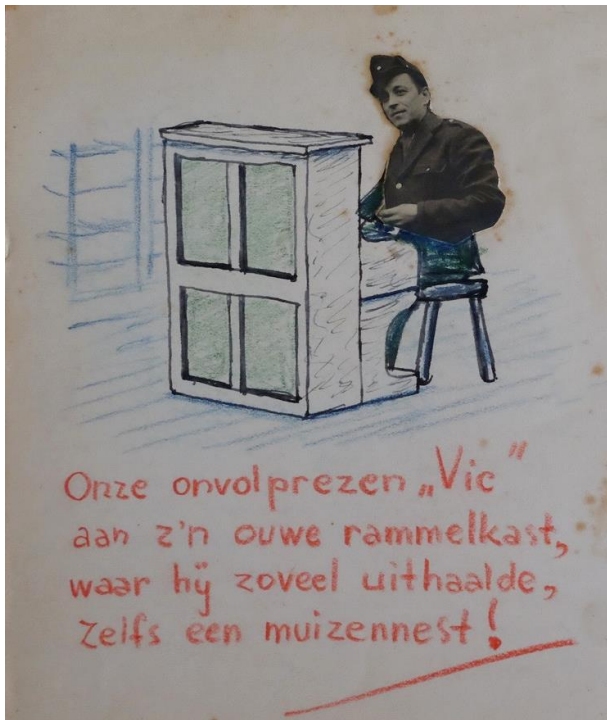 Onze onvolprezen „Vic”
aan z'n ouwe rammelkast,
waar hij zoveel uithaalde,
zelfs een muizennest!